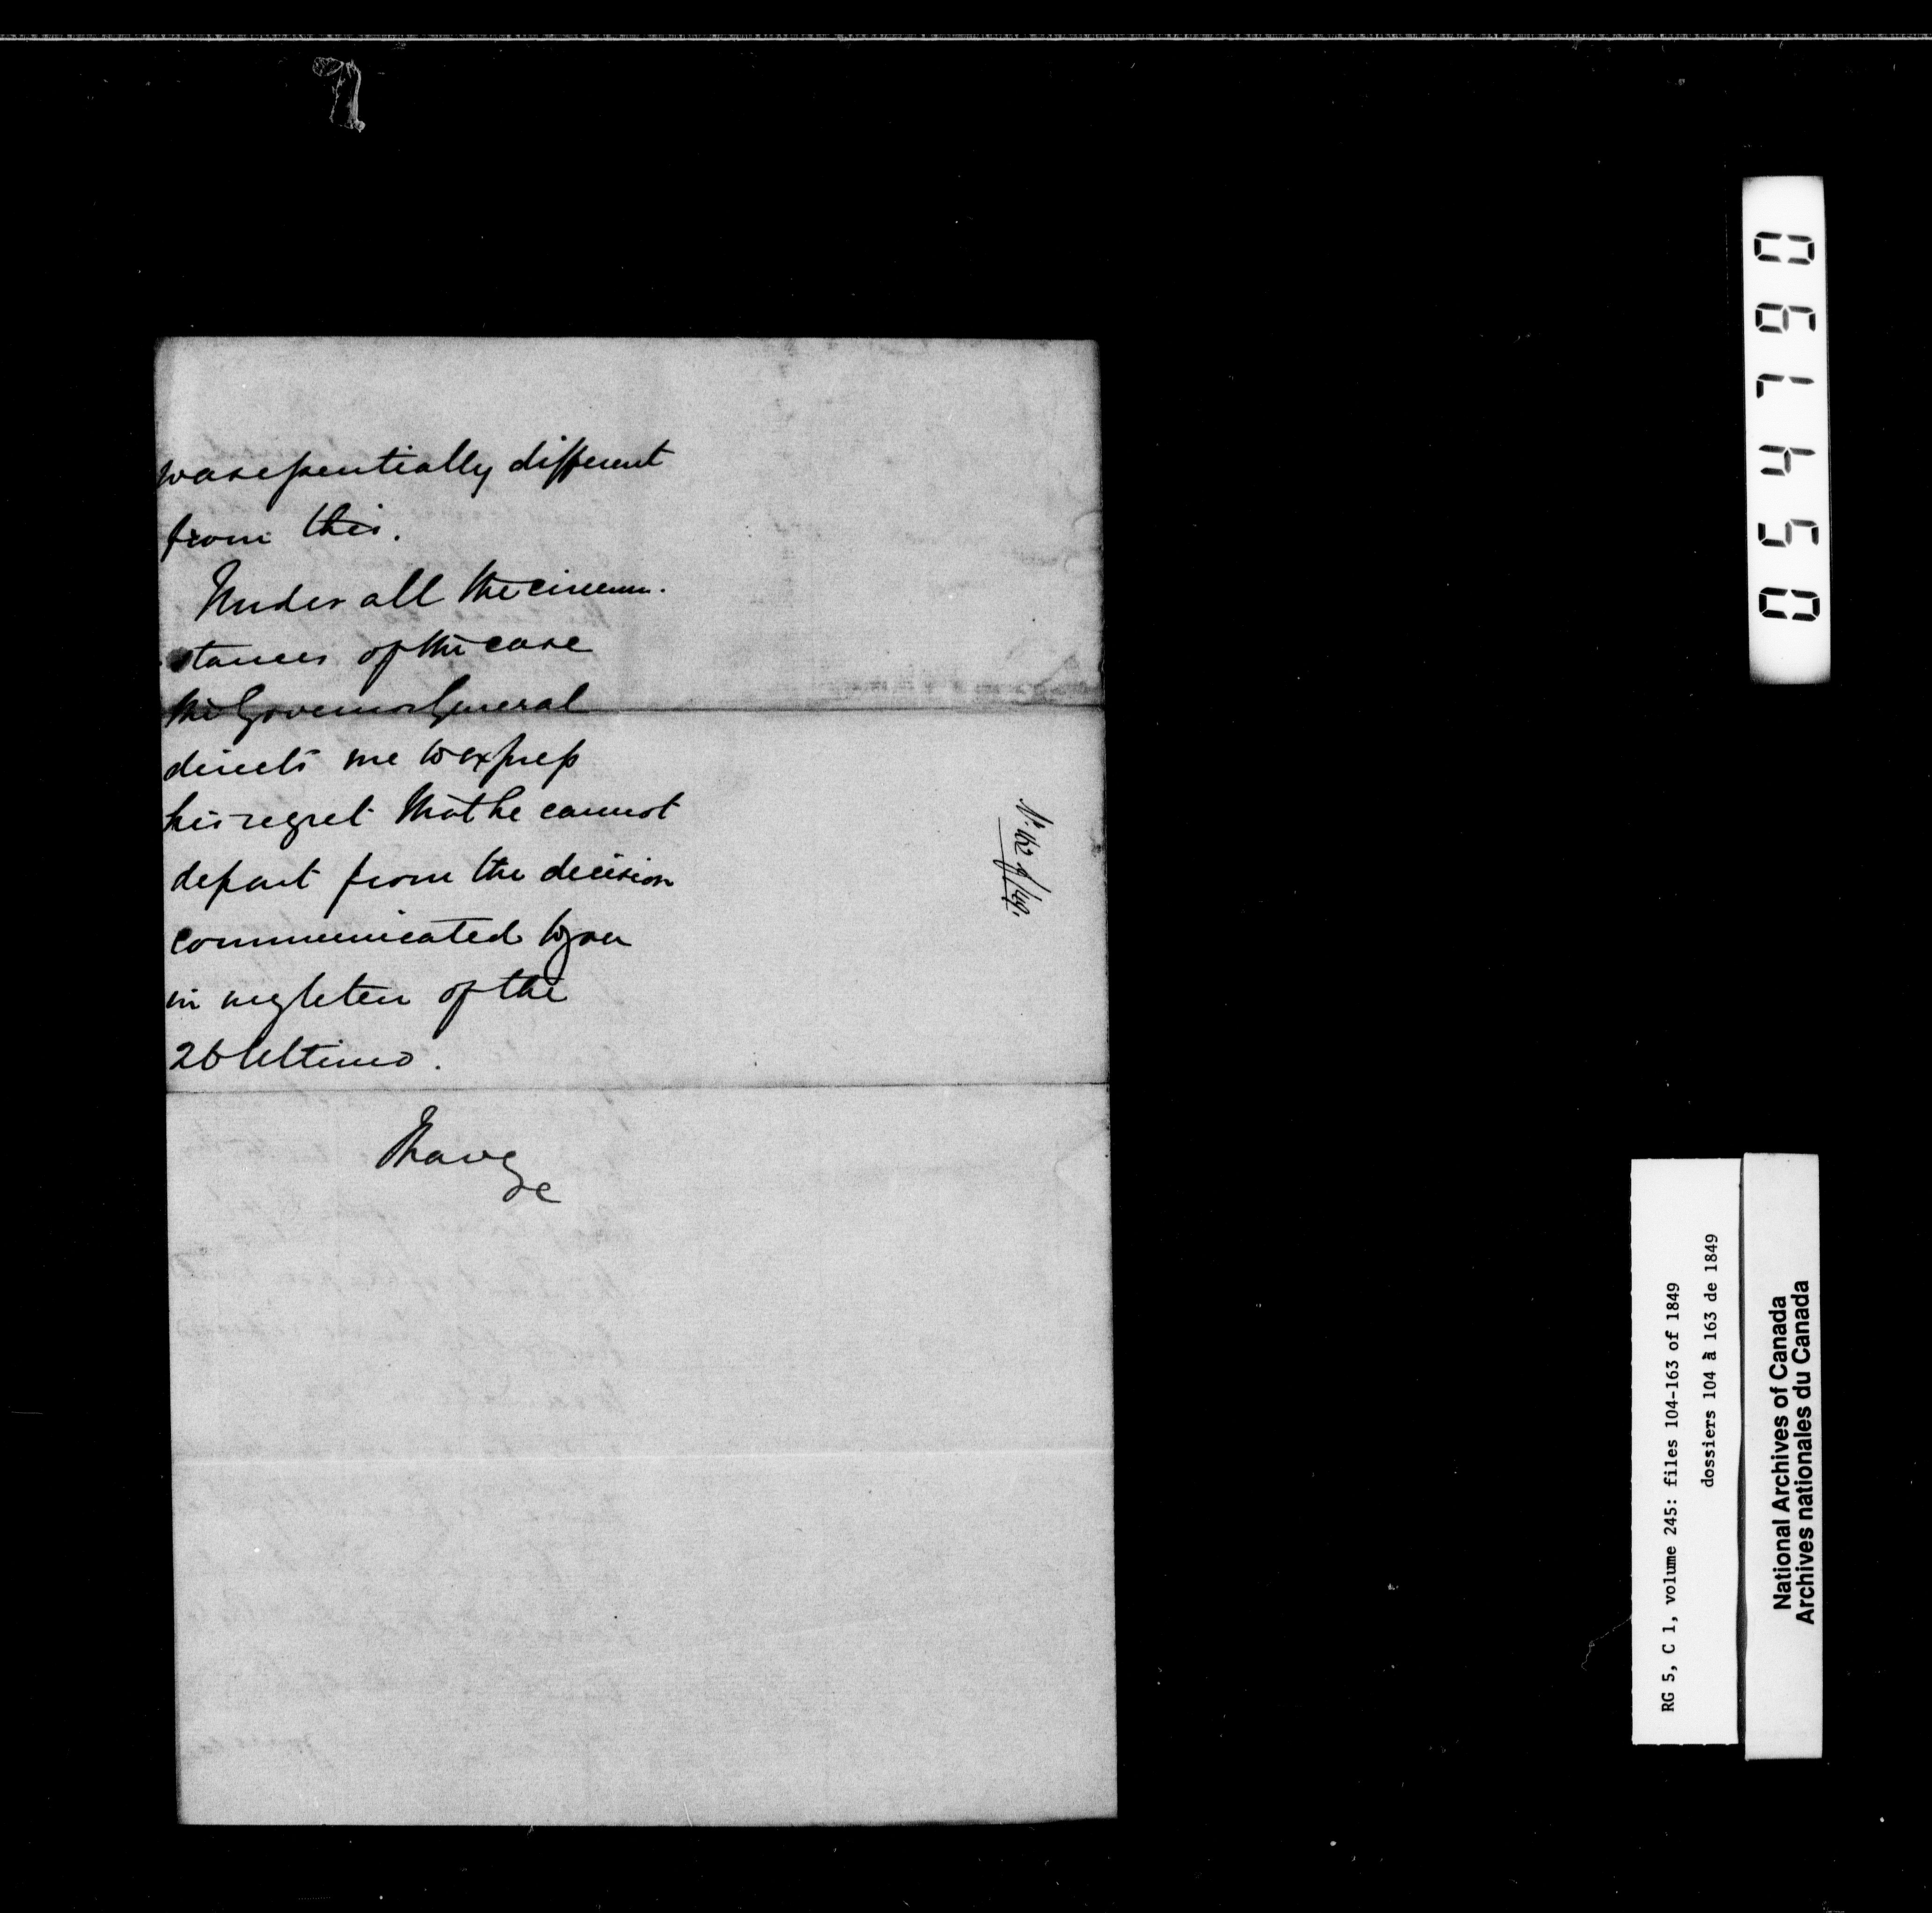 was essentially different
from this.
Under all the circum-
stances of the case
the Governor General
directs me to express
his regret that he cannot
depart from the decision
communicated to you
in my letter of the
26 Ultimo.
I have
&c
No. 162 of/49.
054790
RG 5, C 1, volume 245: files 104-163 of 1849
dossiers 104 à 163 de 1849
National Archives of Canada
Archives nationales du Canada